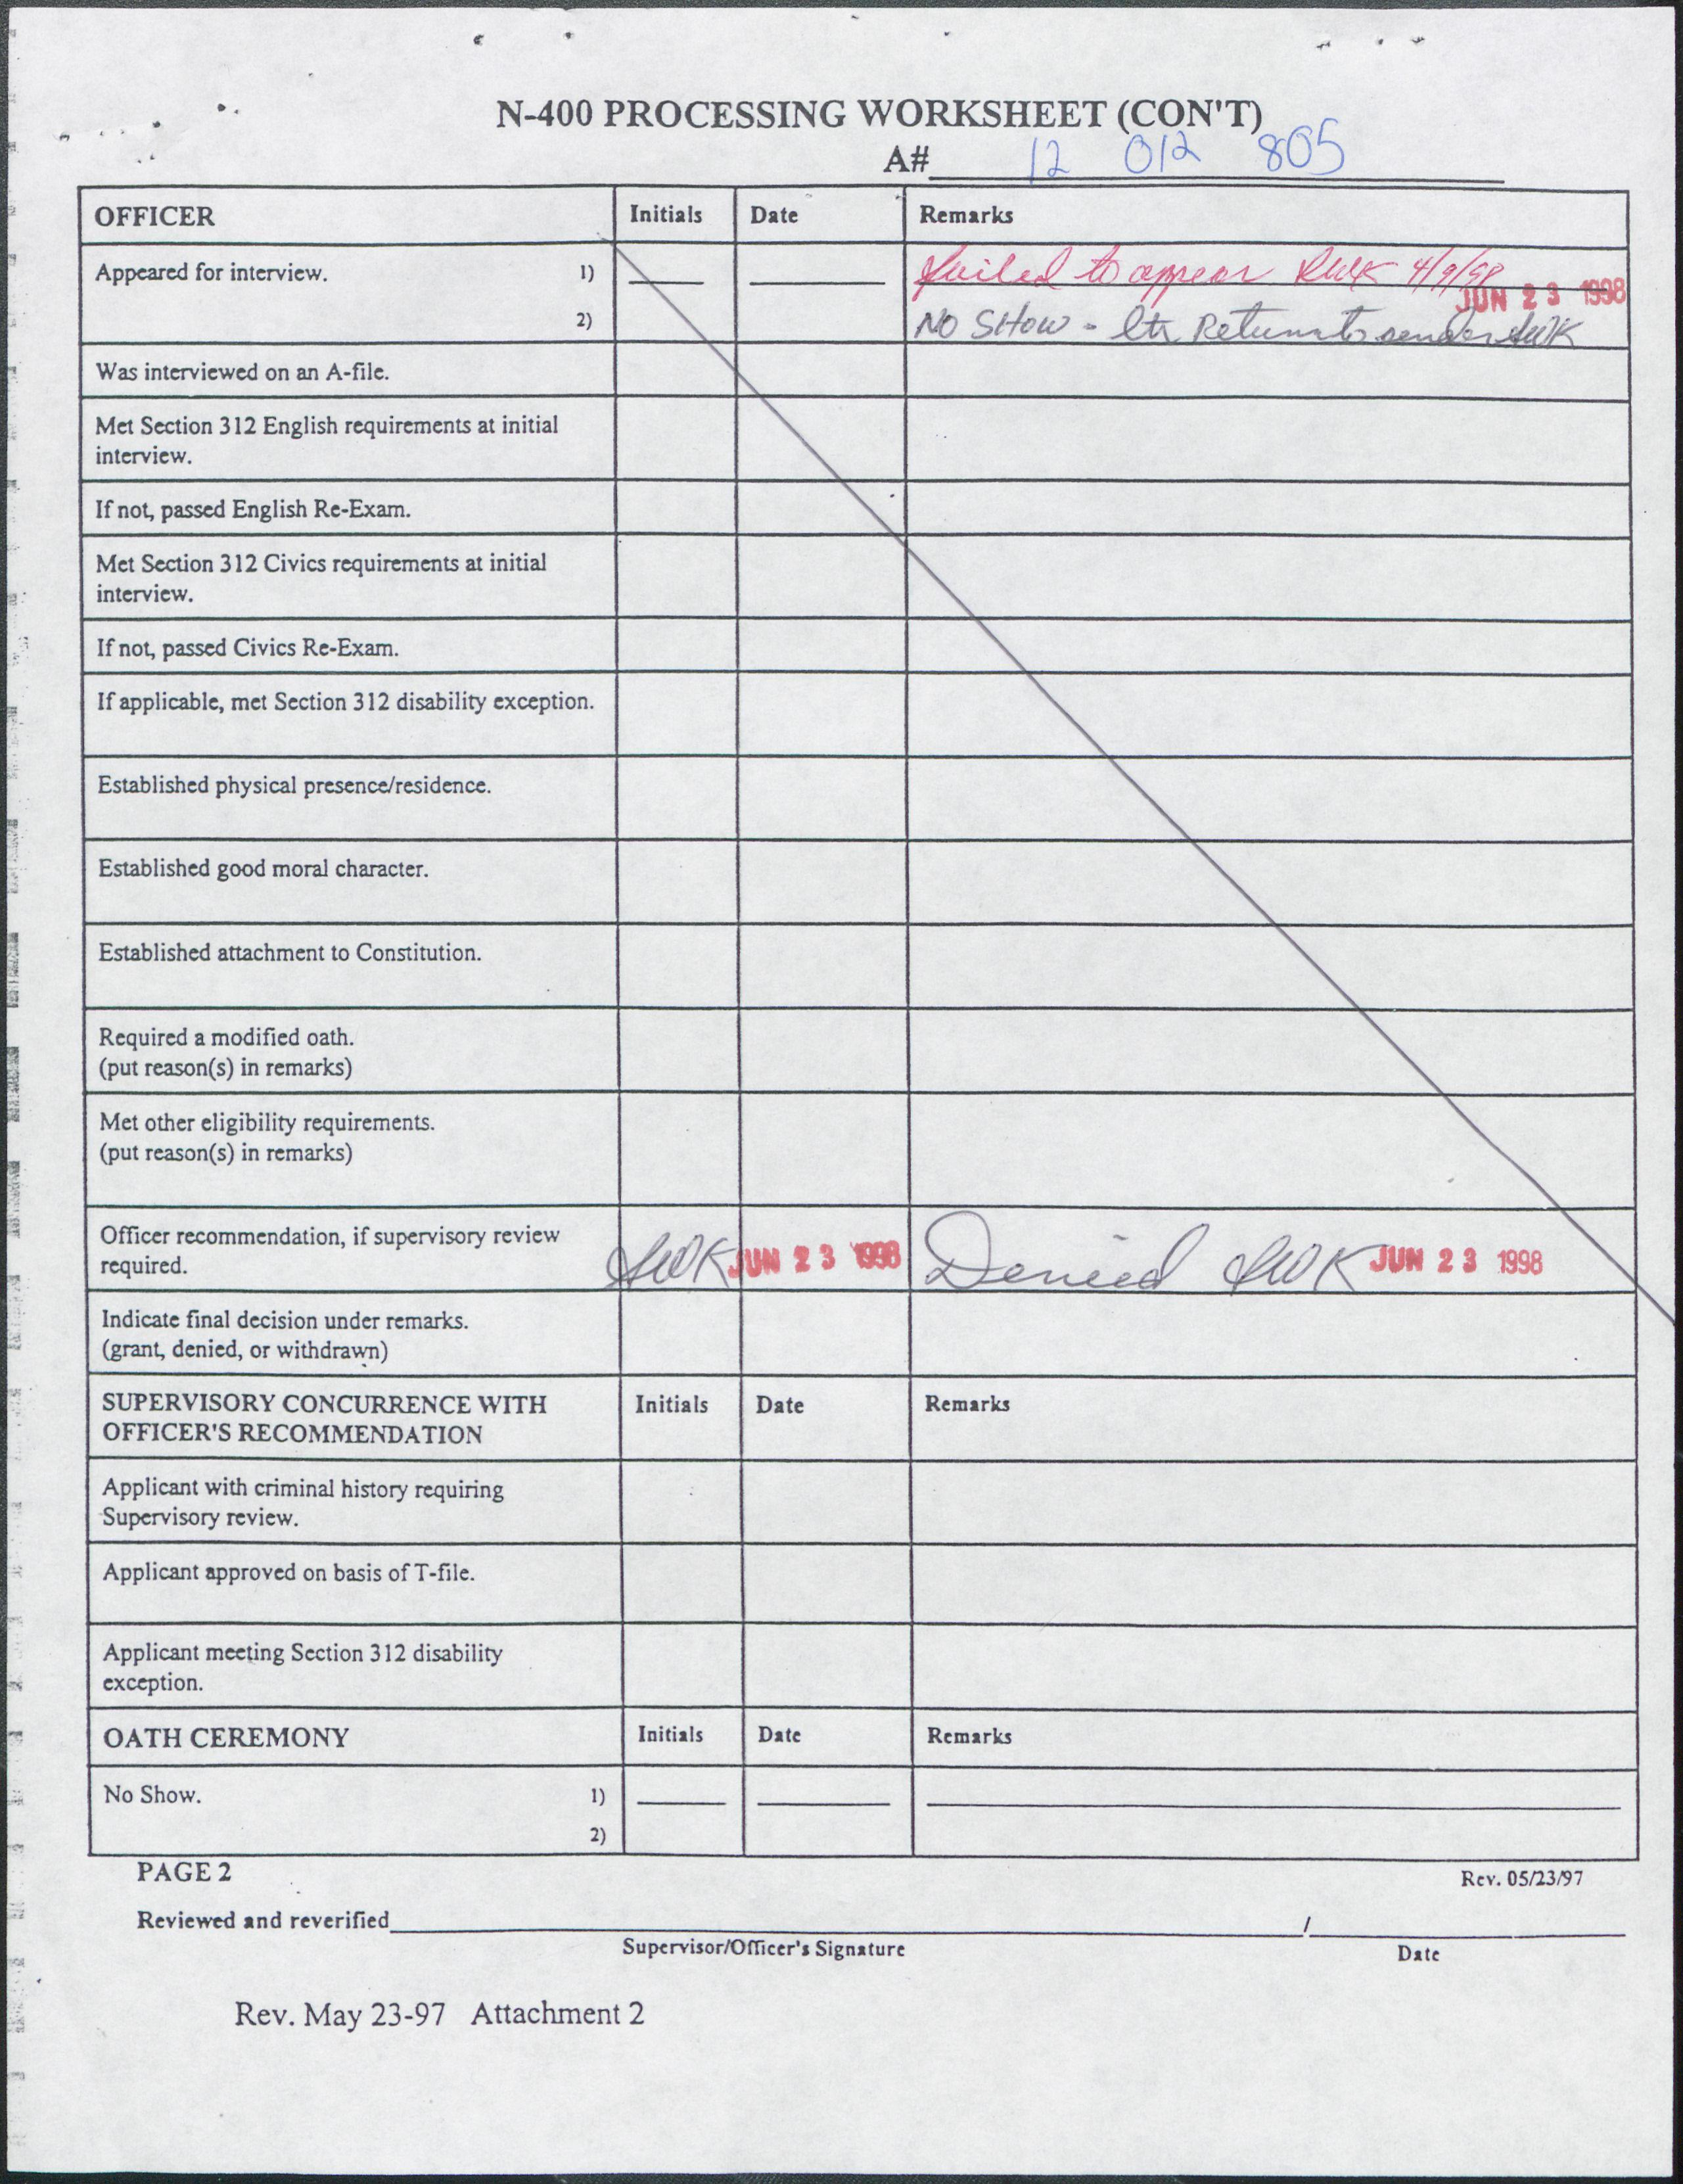 N-400 PROCESSING WORKSHEET (CON'T)
A# 12 012 805
OFFICER Initials Date Remarks
Appeared for interview. 1) failed to appear 4/9/98
JUN 23 1998
2) NO SHOW - ltr Return to sender
Was interviewed on an A-file.
Met Section 312 English requirements at initial
interview.
If not, passed English Re-Exam.
Met Section 312 Civics requirements at initial
interview.
If not, passed Civics Re-Exam.
If applicable, met Section 312 disability exception.
Established physical presence/residence.
Established good moral character.
Established attachment to Constitution.
Required a modified oath.
(put reason(s) in remarks)
Met other eligibility requirements.
(put reason(s) in remarks)
Officer recommendation, if supervisory review
required. JUN 23 1998 Denied JUN 23 1998
Indicate final decision under remarks.
(grant, denied, or withdrawn)
SUPERVISORY CONCURRENCE WITH
OFFICER'S RECOMMENDATION Initials Date Remarks
Applicant with criminal history requiring
Supervisory review.
Applicant approved on basis of T-file.
Applicant meeting Section 312 disability
exception.
OATH CEREMONY Initials Date Remarks
No Show. 1)
2)
PAGE 2 Rev. 05/23/97
Reviewed and reverified /
Supervisor/Officer's Signature Date
Rev. May 23-97 Attachment 2